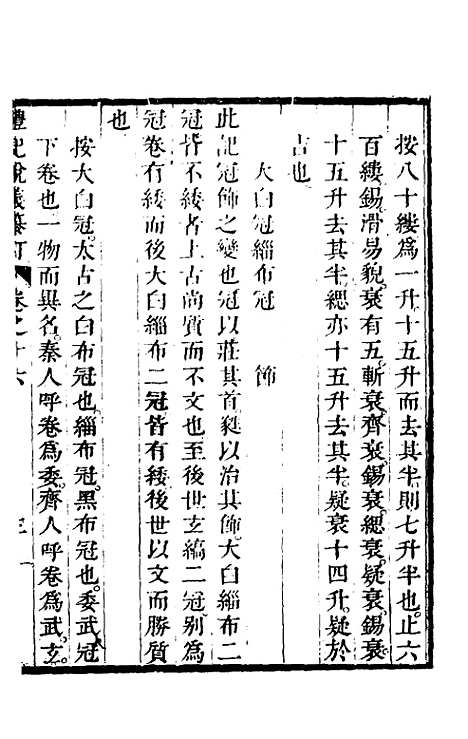 按八十縷爲一升十五升而去其半則七升半也止六
百縷錫滑易貌衰有五斬衰齊衰錫衰緦衰疑衰錫衰
十五升去其半緦亦十五升去其半疑衰十四升疑於
吉也
大白冠緇布冠 節
此記冠飾之變也冠以莊其首緌以治其飾大白緇布二
冠皆不緌者上古尚質而不文也至後世玄縞二冠别爲
冠卷有緌而後大白緇布二冠皆有緌後世以文而勝質
也
按大白冠太古之白布冠也緇布冠黑布冠也委武冠
下卷也一物而異名秦人呼卷爲委齊人呼卷爲武玄
禮記說義纂訂 卷之十六 三